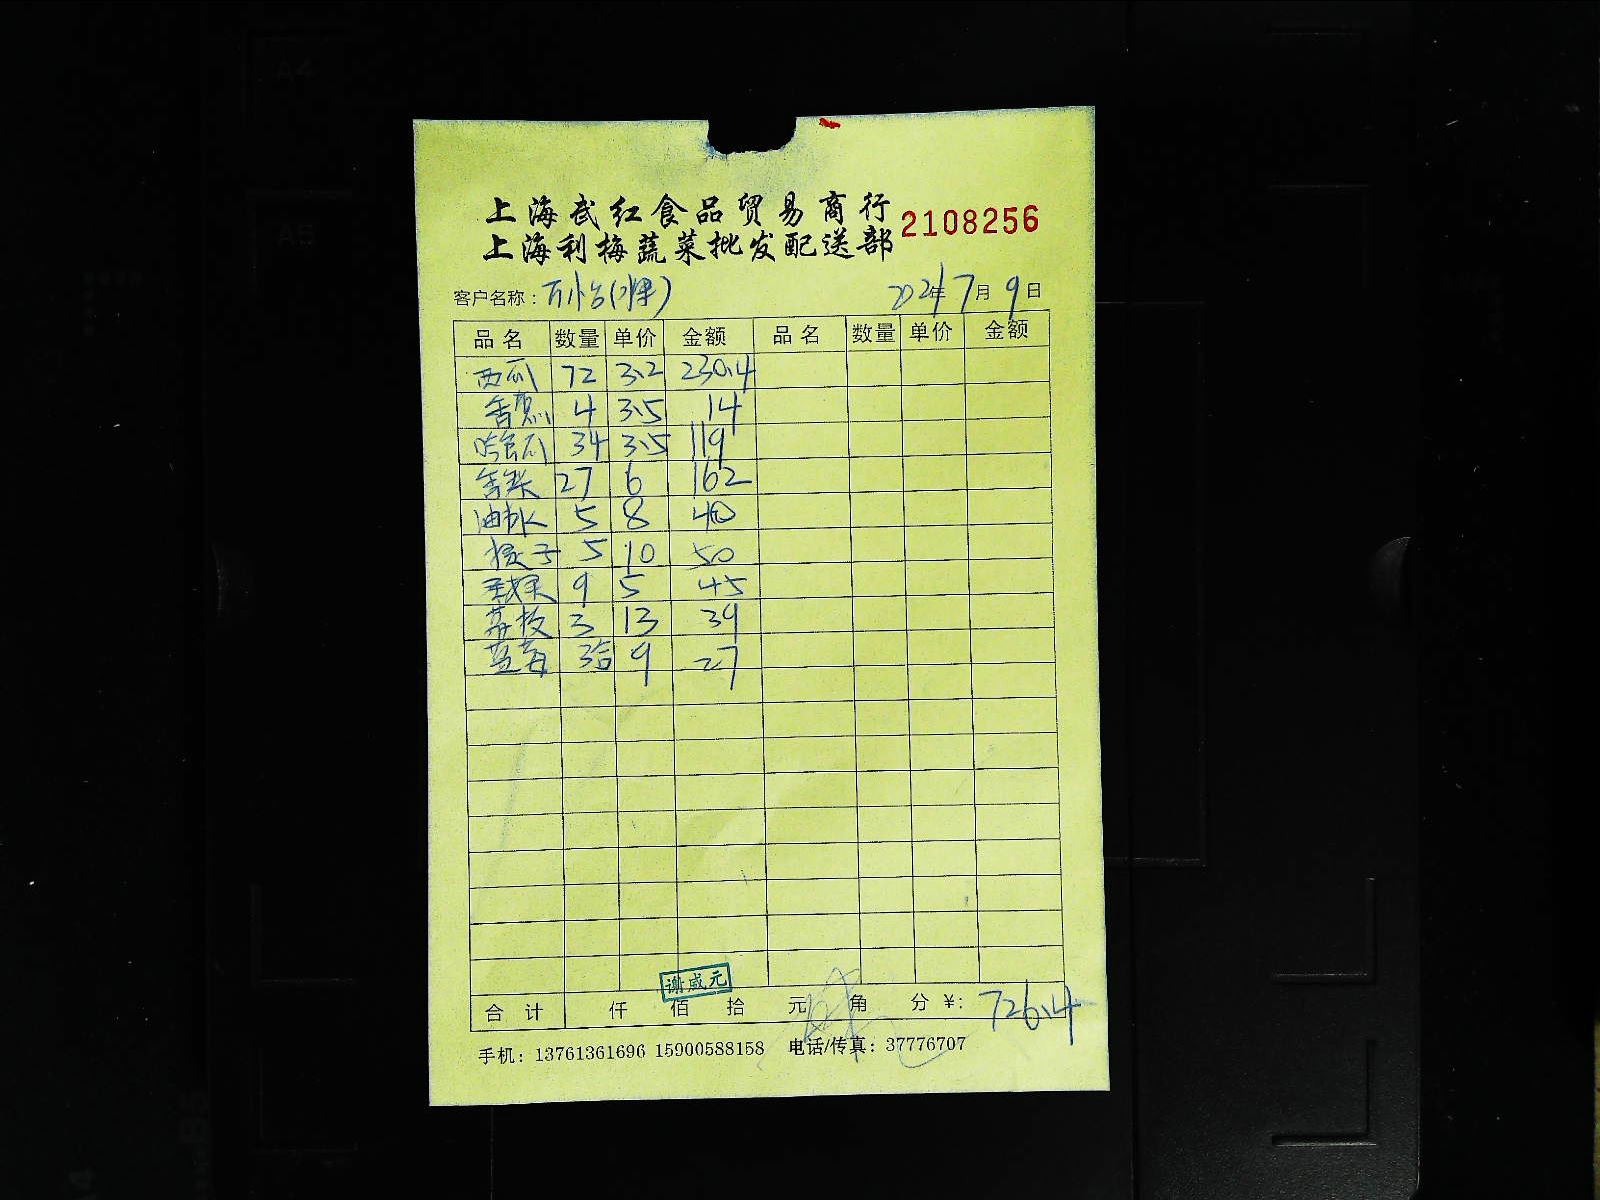 上海武红食品贸易商行
上海利梅蔬菜批发配送部 2108256
客户名称： (水果) 2021年7月9日
品名 数量 单价 金额 品名 数量 单价 金额
西瓜 72 3.2 230.4
香蕉 4 3.5 14
哈密瓜 34 3.5 119
香梨 27 6 162
油桃 5 8 40
提子 5 10 50
9 5 45
荔枝 3 13 39
蓝莓 3合 9 27
谢成元
合计 仟 佰 拾 元 角 分 ¥: 726.4
手机：13761361696 15900588158 电话/传真：37776707
A4
A5